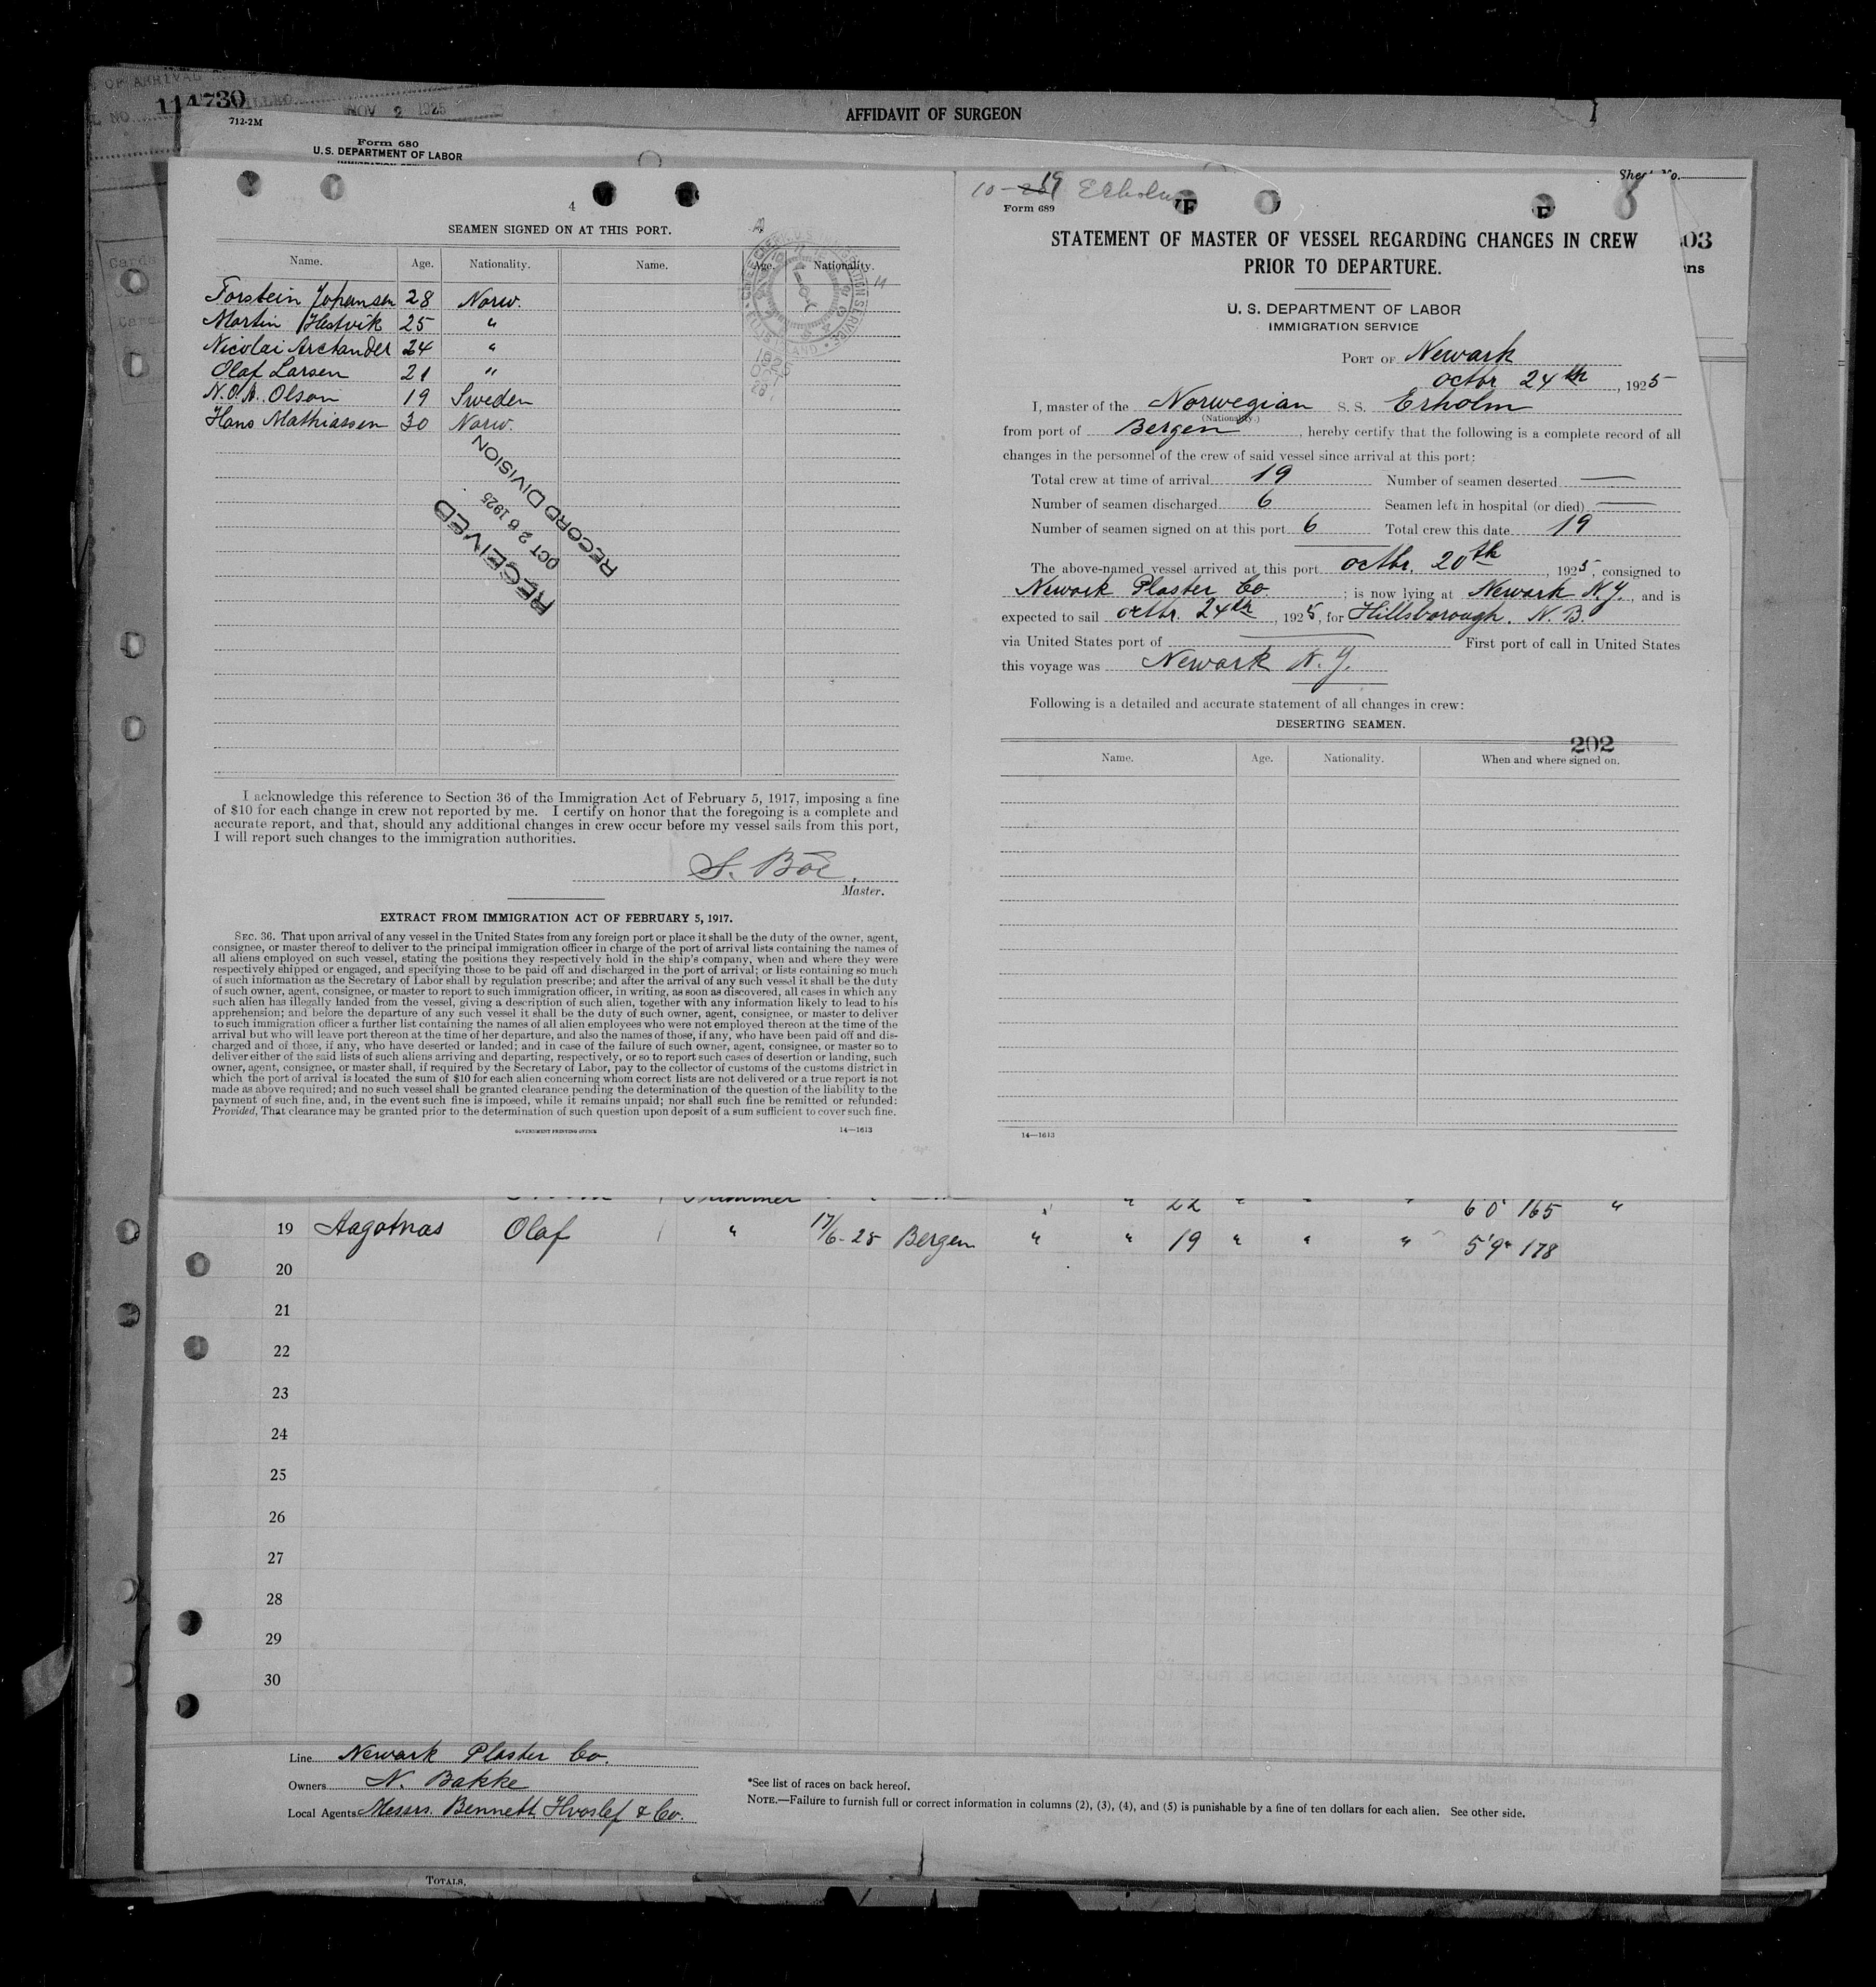 OF ARRIVAL
114730
NOV 2 1925
712-2M
AFFIDAVIT OF SURGEON
Form 680
U.S. DEPARTMENT OF LABOR
4
SEAMEN SIGNED ON AT THIS PORT.
Name. Age. Nationality. Name. Age. Nationality.
Torstein Johansen 28 Norw.
Martin Hestvik 25 "
Nicolai Arctander 24 "
Olaf Larsen 21 "
N.O.A. Olson 19 Sweden
Hans Mathiassen 30 Norw.
RECEIVED
OCT 26 1925
RECORD DIVISION
I acknowledge this reference to Section 36 of the Immigration Act of February 5, 1917, imposing a fine
of $10 for each change in crew not reported by me. I certify on honor that the foregoing is a complete and
accurate report, and that, should any additional changes in crew occur before my vessel sails from this port,
I will report such changes to the immigration authorities.
S. Böe,
Master.
EXTRACT FROM IMMIGRATION ACT OF FEBRUARY 5, 1917.
SEC. 36. That upon arrival of any vessel in the United States from any foreign port or place it shall be the duty of the owner, agent,
consignee, or master thereof to deliver to the principal immigration officer in charge of the port of arrival lists containing the names of
all aliens employed on such vessel, stating the positions they respectively hold in the ship's company, when and where they were
respectively shipped or engaged, and specifying those to be paid off and discharged in the port of arrival; or lists containing so much
of such information as the Secretary of Labor shall by regulation prescribe; and after the arrival of any such vessel it shall be the duty
of such owner, agent, consignee, or master to report to such immigration officer, in writing, as soon as discovered, all cases in which any
such alien has illegally landed from the vessel, giving a description of such alien, together with any information likely to lead to his
apprehension; and before the departure of any such vessel it shall be the duty of such owner, agent, consignee, or master to deliver
to such immigration officer a further list containing the names of all alien employees who were not employed thereon at the time of the
arrival but who will leave port thereon at the time of her departure, and also the names of those, if any, who have been paid off and dis-
charged and of those, if any, who have deserted or landed; and in case of the failure of such owner, agent, consignee, or master so to
deliver either of the said lists of such aliens arriving and departing, respectively, or so to report such cases of desertion or landing, such
owner, agent, consignee, or master shall, if required by the Secretary of Labor, pay to the collector of customs of the customs district in
which the port of arrival is located the sum of $10 for each alien concerning whom correct lists are not delivered or a true report is not
made as above required; and no such vessel shall be granted clearance pending the determination of the question of the liability to the
payment of such fine, and, in the event such fine is imposed, while it remains unpaid; nor shall such fine be remitted or refunded:
Provided, That clearance may be granted prior to the determination of such question upon deposit of a sum sufficient to cover such fine.
GOVERNMENT PRINTING OFFICE 14—1613
10- 19 Erholm
Form 689
STATEMENT OF MASTER OF VESSEL REGARDING CHANGES IN CREW
PRIOR TO DEPARTURE.
U. S. DEPARTMENT OF LABOR
IMMIGRATION SERVICE
PORT OF Newark
octbr 24th, 1925
I, master of the Norwegian S. S. Erholm
(Nationality.)
from port of Bergen, hereby certify that the following is a complete record of all
changes in the personnel of the crew of said vessel since arrival at this port:
Total crew at time of arrival 19 Number of seamen deserted —
Number of seamen discharged 6 Seamen left in hospital (or died) —
Number of seamen signed on at this port 6 Total crew this date 19
The above-named vessel arrived at this port octbr. 20th, 1925, consigned to
Newark Plaster Co; is now lying at Newark N.J., and is
expected to sail octbr. 24th, 1925, for Hillsborough. N. B.
via United States port of — First port of call in United States
this voyage was Newark N. J.
Following is a detailed and accurate statement of all changes in crew:
DESERTING SEAMEN.
202
Name. Age. Nationality. When and where signed on.
14—1613
Sheet No.
03
ns
" 22 " " " 6'0" 165 "
19 Aagotnas Olaf " 17/6-25 Bergen " " 19 " " " 5'9" 178
20
21
22
23
24
25
26
27
28
29
30
Line Newark Plaster Co.
Owners N. Bakke
Local Agents Messrs. Bennett Hvoslef & Co.
*See list of races on back hereof.
NOTE.—Failure to furnish full or correct information in columns (2), (3), (4), and (5) is punishable by a fine of ten dollars for each alien. See other side.
TOTALS,